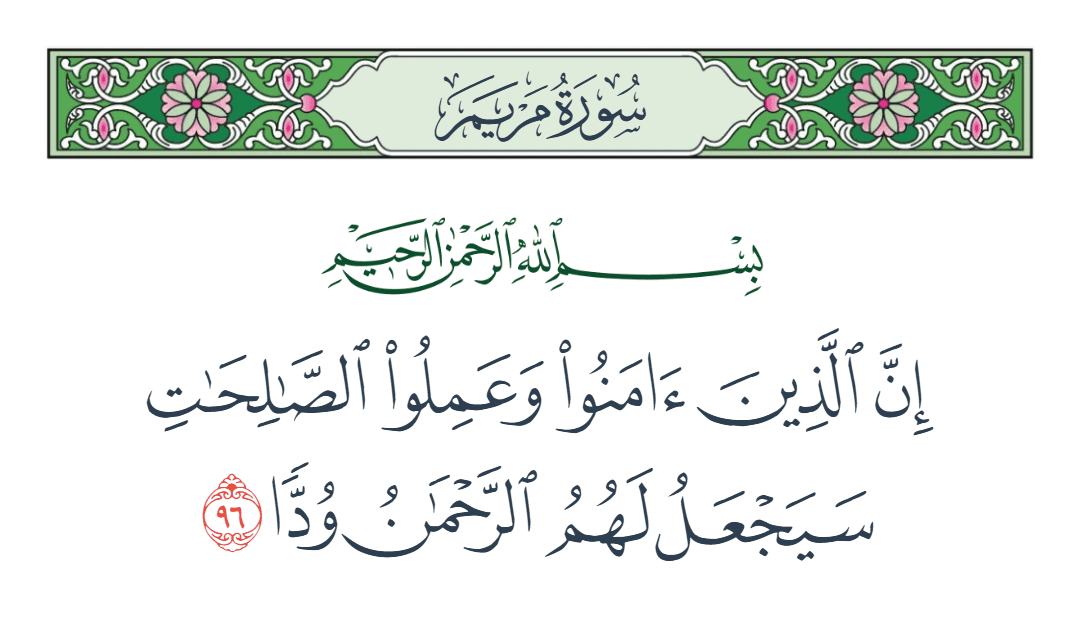 سُورَةُ مَرْيَمَ
بِسْمِ ٱللَّهِ ٱلرَّحْمَٰنِ ٱلرَّحِيمِ
إِنَّ ٱلَّذِينَ ءَامَنُوا۟ وَعَمِلُوا۟ ٱلصَّٰلِحَٰتِ
سَيَجْعَلُ لَهُمُ ٱلرَّحْمَٰنُ وُدًّا ٩٦